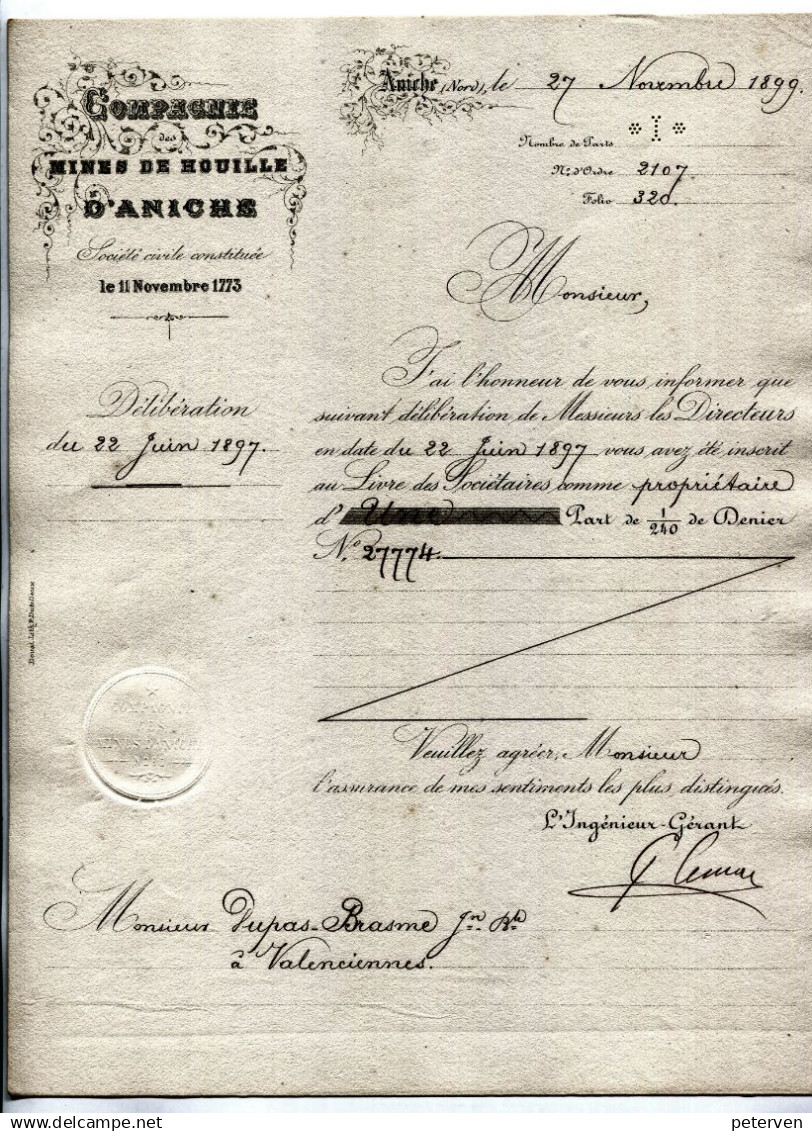 COMPAGNIE
des
MINES DE HOUILLE
D'ANICHE
Société civile constituée
le 11 Novembre 1773
Aniche (Nord), le 27 Novembre 1899.
Nombre de Parts *1*
N° d'Ordre 2107.
Folio 320.
Monsieur,
Délibération
du 22 Juin 1897.
J'ai l'honneur de vous informer que
suivant délibération de Messieurs les Directeurs
en date du 22 Juin 1897 vous avez été inscrit
au Livre des Sociétaires comme propriétaire
d'Une Part de 1/240 de Denier
N° 27774.
COMPAGNIE
DES
MINES D'ANICHE
Veuillez agréer, Monsieur
l'assurance de mes sentiments les plus distingués.
L'Ingénieur-Gérant
Monsieur Dupas-Brasme Jn Bte
à Valenciennes.
Delcampe.net
peterven